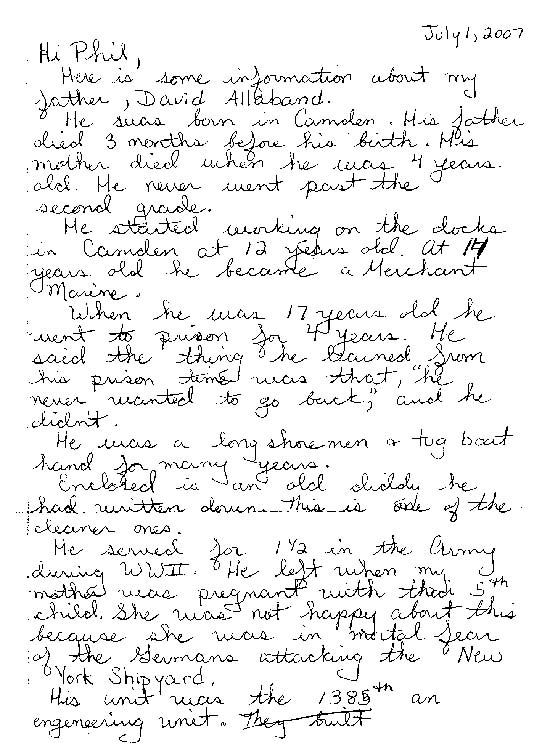 July 1, 2007
Hi Phil,
Here is some information about my
father, David Allaband.
He was born in Camden. His father
died 3 months before his birth. His
mother died when he was 4 years
old. He never went past the
second grade.
He started working on the docks
in Camden at 12 years old. At 14
years old he became a Merchant
Marine.
When he was 17 years old he
went to prison for 4 years. He
said the thing he learned from
his prison time was that, "he
never wanted to go back," and he
didn't.
He was a longshoremen or tug boat
hand for many years.
Enclosed is an old diddy he
had written down. This is one of the
cleaner ones.
He served for 1 1/2 in the Army
during WWII. He left when my
mother was pregnant with their 5th
child. She was not happy about this
because she was in mortal fear
of the Germans attacking the New
York Shipyard.
His unit was the 1385th an
engeneering unit. They built